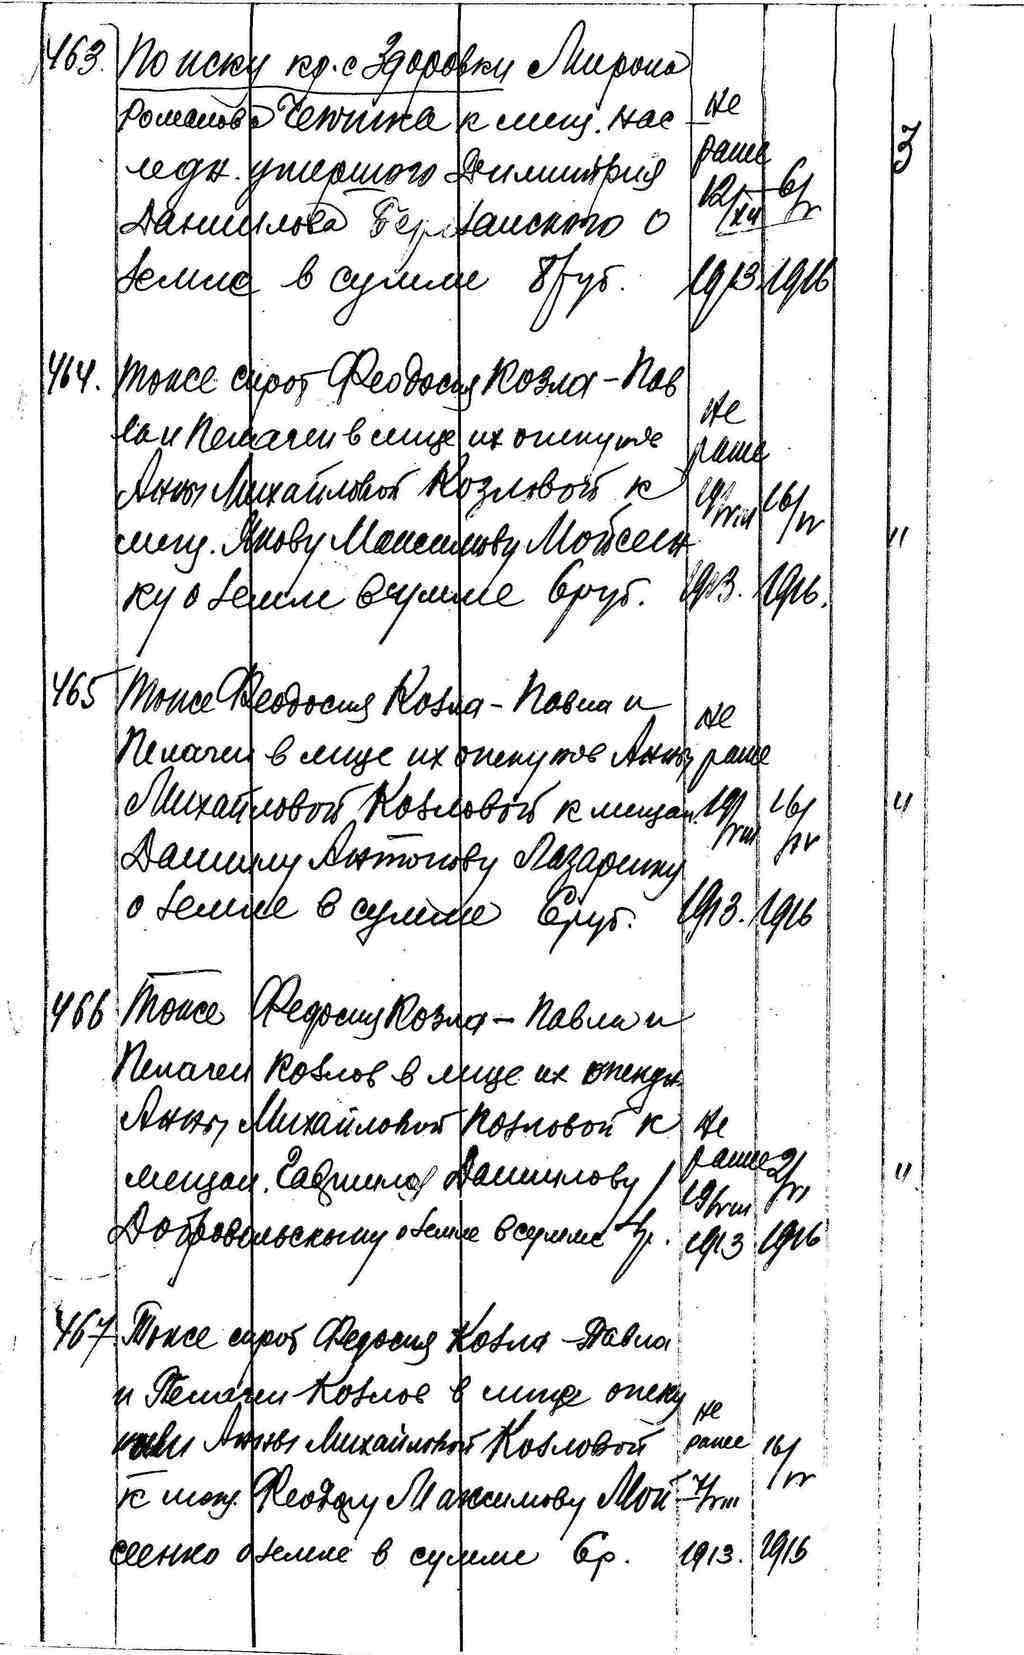 463. По иску кр. с Здоровки Мирона
Романова к мещ. нас
ледн. умершого Димитрия
Данилова о
земле в сумме 8 руб.
Не
ранее
12/XII 6/V
1913. 1916
3
464. Тоже сирот Феодосия Козла - Пав
ла и Пелагеи в лице их опекунов
Анны Михайловой Козловой к
мещ. Якову Максимову Мойсеен
ку о земле в сумме 6 руб.
Не
ранее
19/VIII 16/IV
1913. 1916.
"
465 Тоже Феодосия Козла - Павла и
Пелагеи в лице их опекунов Анны
Михайловой Козловой к мещан.
Даниилу Антонову Лазаренку
о земле в сумме 6 руб.
Не
ранее
19/VIII 16/IV
1913. 1916
"
466 Тоже Федосия Козла - Павла и
Пелагеи Козлов в лице их опекун.
Анны Михайловой Козловой к
мещан. Гавриилу Даниилову
Добровольскому о земле в сумме р.
Не
ранее
19/VIII
1913 1916
"
467 Тоже сирот Федосия Козла - Павла
и Пелагеи Козлов в лице опеку
Анны Михайловой Козловой
к мещ. Феодору Максимову Мой
сеенко о земле в сумме 6 р.
Не
ранее 16/IV
7/VIII
1913. 1916